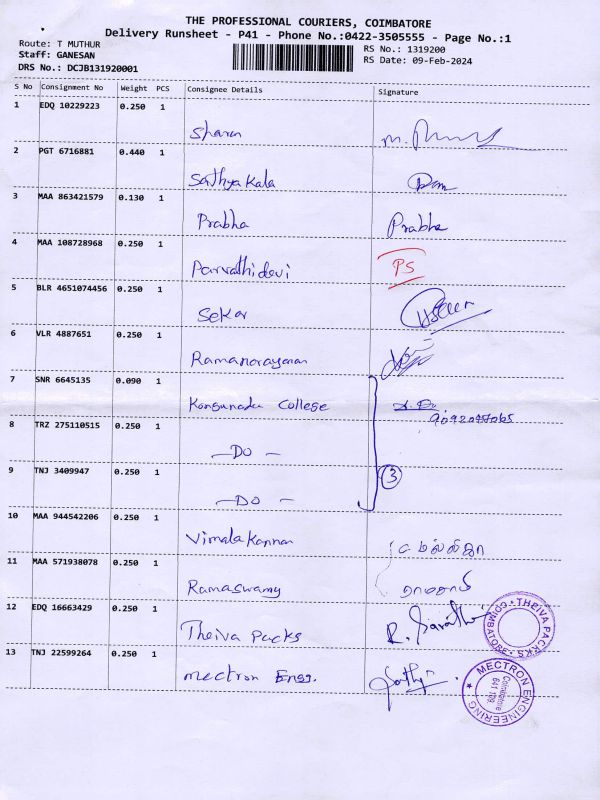 THE PROFESSIONAL COURIERS, COIMBATORE
Delivery Runsheet - P41 - Phone No.:0422-3505555 - Page No.:1
Route: T MUTHUR
RS No.: 1319200
Staff: GANESAN
RS Date: 09-Feb-2024
DRS No.: DCJB131920001
S No Consignment No Weight PCS Consignee Details Signature
1 EDQ 10229223 0.250 1
Sharan
2 PGT 6716881 0.440 1
Sathyakala
3 MAA 863421579 0.130 1
Prabha Prabha
4 MAA 108728968 0.250 1
Parvathidevi PS
5 BLR 4651074456 0.250 1
Sekar
6 VLR 4887651 0.250 1
Ramanarayanan
7 SNR 6645135 0.090 1
Kongunadu College
8 TRZ 275110515 0.250 1
—DO—
9 TNJ 3409947 0.250 1
3
—DO—
10 MAA 944542206 0.250 1
Vimala Kannan
11 MAA 571938078 0.250 1
Ramaswamy
12 EDQ 16663429 0.250 1
Theiva Packs
THEIVA PACKS COIMBATORE
13 TNJ 22599264 0.250 1
Mectron Engg.
MECTRON ENGINEERING
Coimbatore